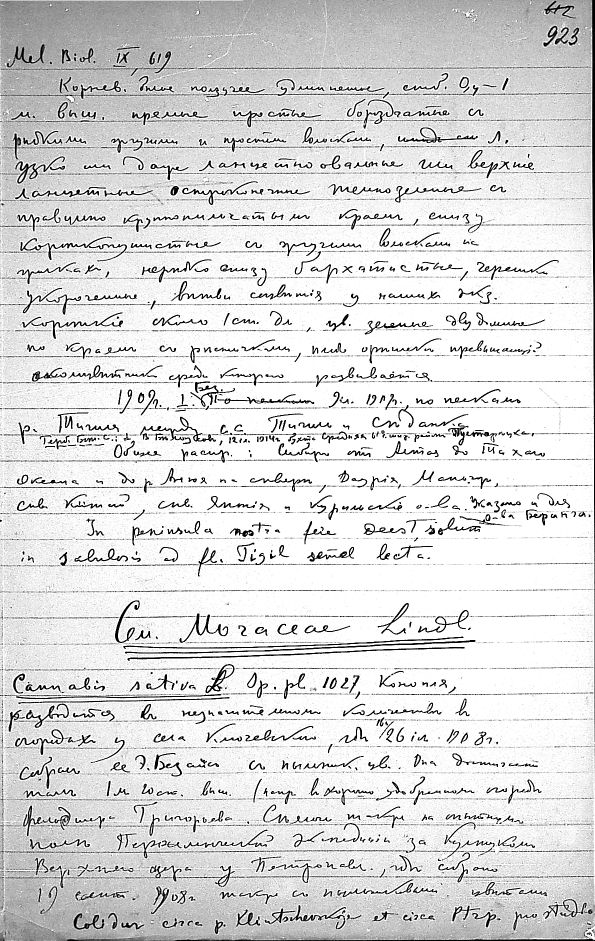 612
923
Mel. Biol. IX, 619
Корнев. ползучее удлиненное, стеб. 0,4–1
м. выш. прямые простые бороздчатые с
редкими жгучими и простыми волосками, Л.
узко или даже ланцетноовальные или верхние
ланцетные остроконечные темнозеленые с
правильно крупнопильчатым краем, снизу
короткопушистые с жгучими волосками на
жилках, нередко снизу бархатистые, черешки
укороченные, ветви соцветия у наших экз.
короткие около 1 ст. дл., цв. зеленые двудомные
по краям с ресничками,
околоцветник среди которого развивается
1909г., I. Без. 1909г. по пескам
р. Тигиля между с.с. Тигиль и Седанка
Общее распр.: Сибирь от Алтая до Тихого
Океана и до р Анюя на севере, Даурия, Манчжур.,
сев. Китай, сев. Япония и Курильские о-ва. Указано и для
о-ва Беринга.
In peninsula nostra fere deest, solum
in sabulosis ad fl. Tigil semel lecta.
Сем. Moraceae Lindl.
Cannabis sativa L. Sp. pl. 1027, Конопля,
разводится в незначительном количестве в
огородах у села Ключевского, где 16/26 іл. 1908г.
собрал ее Э. Безайс с пыльник. цв. Она достигает
там 1 м. выш. (напр. в хорошо удобренном огороде
фельдшера Григорьева. Сеяли также на опытном
поле Переселенческой Экспедиции за Култуком
Верхнего озера у Петропавл., где собрано
19 сент. 1908г также с пыльниковыми цветами
Colitur circa p. Kliutschevskoje et circa Ptrp. pro studio